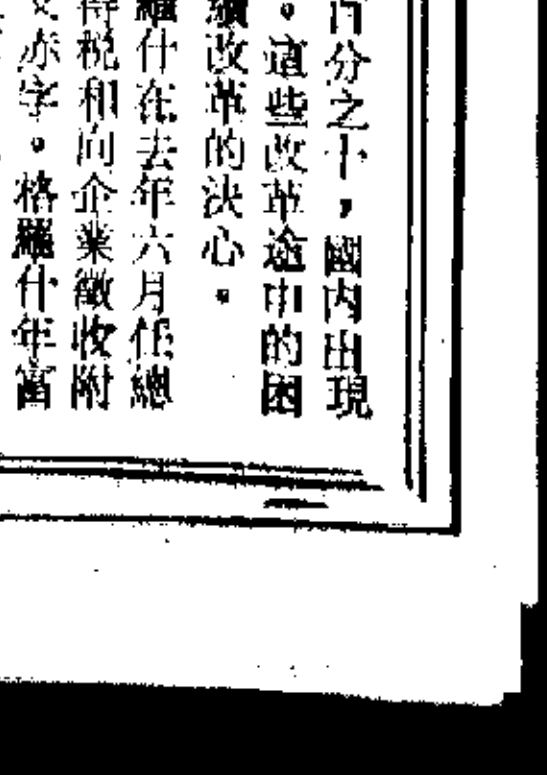 百分之十，國內出現
。這些改革途中的困
續改革的決心。
羅什在去年六月任總
得稅和向企業徵收附
赤字。格羅什年富